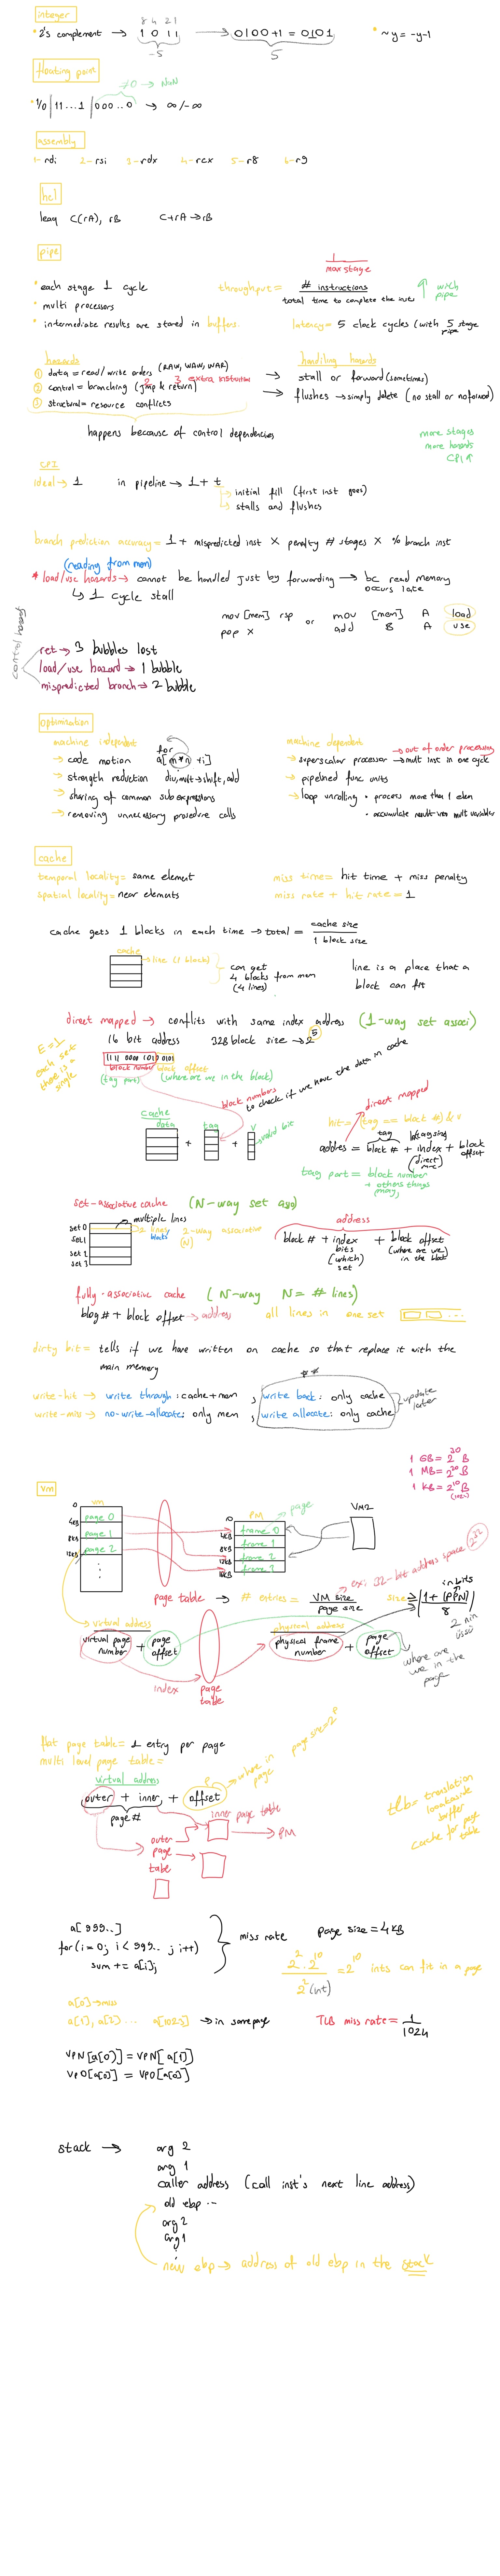 integer
8 4 2 1
* 2's complement → 1 0 1 1 → 0100 +1 = 0101
-5
5
* ~y = -y-1
floating point
≠0 → NaN
* 1/0 | 11 ... 1 | 000 .. 0 → ∞/-∞
assembly
1- rdi 2- rsi 3- rdx 4- rcx 5- r8 6- r9
hcl
leaq C(rA), rB C+rA → rB
pipe
* each stage 1 cycle
* multi processors
* intermediate results are stored in buffers.
1
max stage
throughput = # instructions
total time to complete the insts
↑ with pipe
latency = 5 clock cycles (with 5 stage pipe
hazards
① data = read/write orders (RAW, WAW, WAR)
② control = branching (jump & return)
2 3 extra instruction
③ structural = resource conflicts
handling hazards
→ stall or forward (sometimes)
→ flushes → simply delete (no stall or no forward)
happens because of control dependencies
more stages
more hazards
CPI ↑
CPI
ideal → 1 in pipeline → 1 + t
→ initial fill (first inst goes)
→ stalls and flushes
branch prediction accuracy = 1 + mispredicted inst × penalty # stages × % branch inst
(reading from mem)
* load/use hazards → cannot be handled just by forwarding → bc read memory
occurs late
↳ 1 cycle stall
mov [mem] rsp or mov [mem] A load
pop X add B A use
control hazards
ret → 3 bubbles lost
load/use hazard → 1 bubble
mispredicted branch → 2 bubble
optimisation
machine independent
→ code motion for a[m*n +i]
→ strength reduction div,mult → shift, add
→ sharing of common sub expressions
→ removing unnecessary procedure calls
machine dependent
→ out of order processing
→ superscalar processor → mult inst in one cycle
→ pipelined func units
→ loop unrolling • process more than 1 elem
• accumulate result w/ mult variables
cache
temporal locality = same element
spatial locality = near elements
miss time = hit time + miss penalty
miss rate + hit rate = 1
cache gets 1 blocks in each time → total = cache size
1 block size
cache
→ line (1 block)
can get
4 blocks from mem
(4 lines)
line is a place that a
block can fit
direct mapped → conflicts with same index address (1-way set associ)
E = 1
each set
there is a
single
16 bit address 32B block size → 2^5
1111 0000 1010 0101
block number block offset
(tag part) (where are we in the block)
block numbers
to check if we have the data in cache
cache
data tag V
+ + valid bit
direct mapped
hit = (tag == block #) & v
tag
addres = block # + index + block offset
(direct
tag part = block number
+ others things
may,
set-associative cache (N-way set ass)
multiple lines
set 0
set 1
set 2
set 3
2 lines
blocks
2-way associative
(N)
address
block # + index + block offset
bits
(which)
set
(where are we)
in the block
fully-associative cache (N-way N = # lines)
blog # + block offset → address all lines in one set
dirty bit = tells if we have written on cache so that replace it with the
main memory
**
write-hit → write through : cache + mem , write back : only cache
write-miss → no-write-allocate : only mem , write allocate : only cache
update
later
1 GB = 2^20 B
1 MB = 2^20 B
1 KB = 2^10 B
(1024)
vm
vm
0
4KB
8KB
12KB
page 0
page 1
page 2
PM → page
0
4KB
8KB
12KB
16KB
frame 0
frame 1
frame 2
frame 3
VM2
page table → # entries = VM size
page size
→ ex: 32-bit address space (2^32)
size = 1 + (PPN)
8
in bits
virtual address
virtual page number + page offset
index
page
table
physical address
physical frame number + page offset
where are
we in the
page
flat page table = 1 entry per page
multi level page table =
virtual address
outer + inner + offset
page #
p
→ where in
page
page size = 2^p
inner page table
→ PM
outer
page
table
tlb: translation
lookaside
buffer
cache for page
table
a[999..]
for (i = 0; i < 999.. ; i++)
sum += a[i];
miss rate page size = 4KB
2^2 . 2^10 = 2^10 ints can fit in a page
2^2 (int)
a[0] → miss
a[1], a[2] ... a[1023] → in same page TLB miss rate = 1
1024
VPN[a[0]] = VPN[a[1]]
VPO[a[0]] = VPO[a[0]]
stack → arg 2
arg 1
caller address (call inst's next line address)
old ebp
arg 2
arg 1
new ebp → address of old ebp in the stack